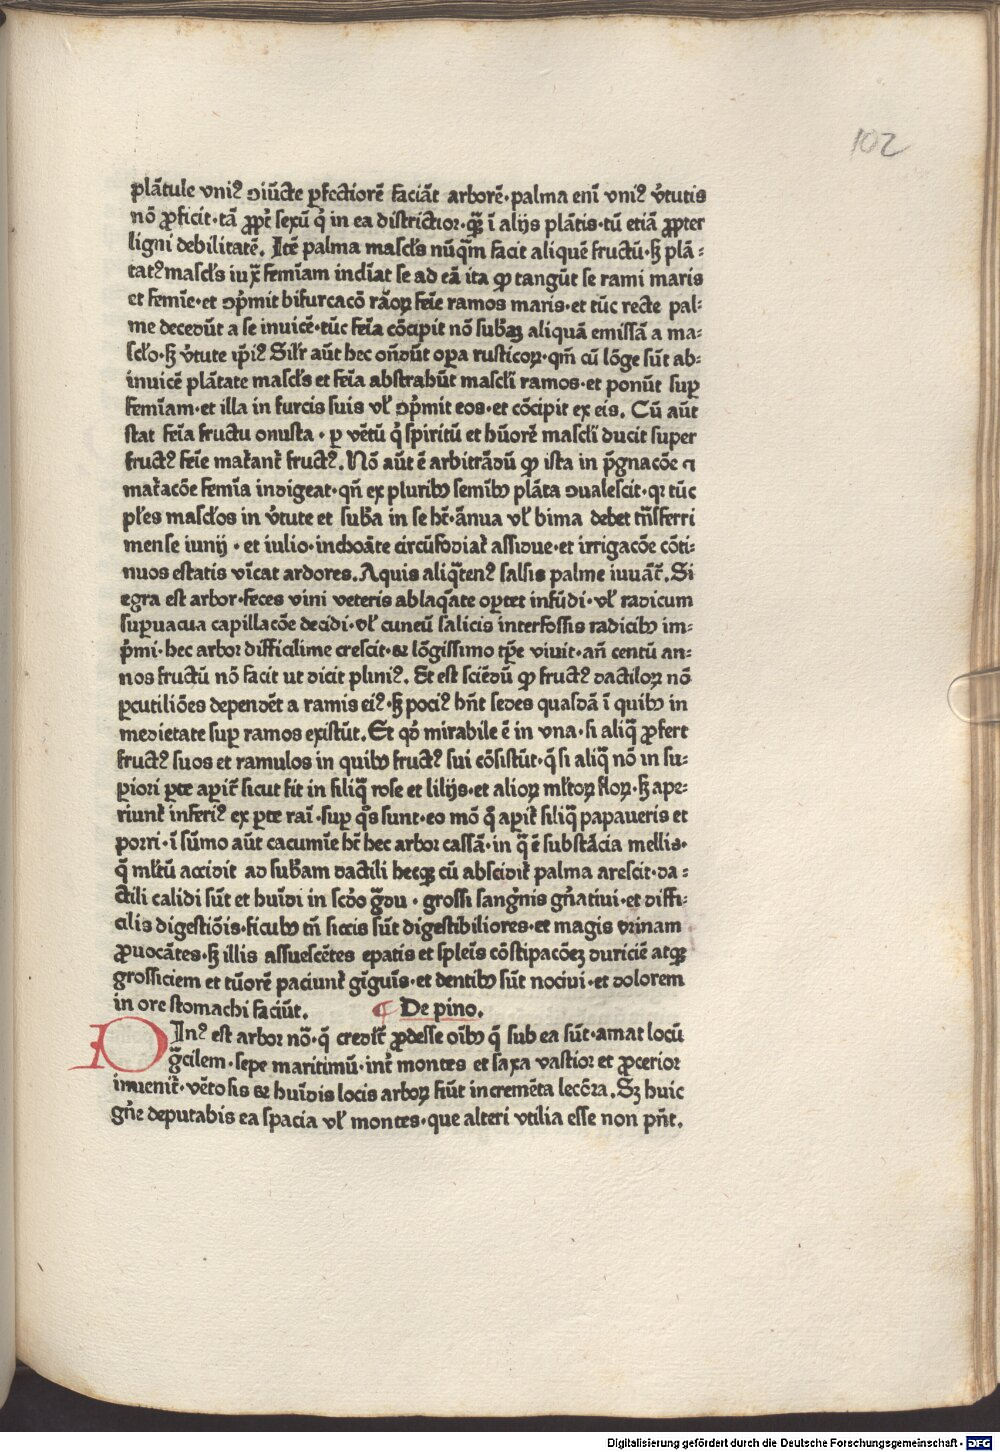 102
plātule vniꝰ ↄiūcte ꝑfectiorē faciāt arborē·palma enī vniꝰ v̓tutis
nō ꝓficit·tā ꝓpt̓ sexū q̇ in ea districtior·q̄ꝫ ī alijs plātis·tū etiā ꝓpter
ligni debilitatē. Itē palma mascl̓s nūq̄m facit aliquē fructū·ꝫ plā⸗
tatꝰ mascl̓s iux̄ femīam indīat se ad eā ita ꝙ tangūt se rami maris
et femīe·et ↄp̄mit bifurcacō rāoꝝ feīe ramos maris·et tūc recte pal⸗
me decedūt a se inuicē·tūc feīa cōcipit nō sub̄aꝫ aliquā emissā a ma⸗
scl̓o·ꝫ v̓tute ip̄iꝰ Sil̓r aūt hec on̄dūt oꝑa rusticoꝝ·qm̄ cū lōge sūt ab⸗
inuicē plātate mascl̓s et feīa abstrahūt mascl̓i ramos·et ponūt suꝑ
femīam·et illa in furcis suis vl̓ ↄp̄mit eos·et cōcipit ex eis. Cū aūt
stat feīa fructu onusta·ꝑ vētū q̇ spiritū et hūorē mascl̓i ducit super
fructꝰ feīe mat̄ant̓ fructꝰ. Nō aūt ē arbitrādū ꝙ ista in p̄gnacōe ⁊
mat̄acōe femīa indigeat·qn̄ ex pluribꝰ semībꝰ plāta ↄualescit·qꝛ tūc
pl̓es mascl̓os in v̓tute et sub̄a in se hꝫ·ānua vl̓ bima debet tn̄sferri
mense iunij·et iulio·inchoāte circūfodiat̓ assidue·et irrigacōe cōti⸗
nuos estatis vīcat ardores. Aquis aliq̄tenꝰ salsis palme iuuāt̓. Si
egra est arbor·feces vini veteris ablaq̄ate oꝑtet infūdi·vl̓ radicum
suꝑuacua capillacōe decidi·vl̓ cuneū salicis interfossis radicibꝰ im⸗
p̄mi·hec arbor difficilime crescit·⁊ lōgissimo tp̄e viuit·an̄ centū an⸗
nos fructū nō facit ut dicit pliniꝰ. Et est sciēdū ꝙ fructꝰ dactiloꝝ nō
ꝑcutiliōes dependēt a ramis eiꝰ·ꝫ pociꝰ hn̄t sedes quasdā ī quibꝰ in
medietate suꝑ ramos existūt. Et qō mirabile ē in vna·si aliq̄ ꝓfert
fructꝰ suos et ramulos in quibꝰ fructꝰ sui cōsistūt·q̄ si aliq̄ nō in su⸗
ꝑiori ꝑte aꝑit̓ sicut fit in siliq̄ rose et lilijs·et alioꝝ ml̓toꝝ floꝝ·ꝫ ape⸗
riunt̓ inferiꝰ ex ꝑte raī·suꝑ q̄s sunt·eo mō q̊ aꝑit̓ siliq̄ papaueris et
porri·ī sūmo aūt cacumīe hꝫ hec arbor cassā·in q̄ ē substācia mellis·
q̄ ml̓tū accidit ad sub̄am dactili hecqꝫ cū abscidit̓ palma arescit·da⸗
ctili calidi sūt et huīdi in scd̄o g̊du·grossi sang̓nis gn̄atiui·et diffi⸗
cilis digestiōis·ficubꝰ tn̄ siccis sūt digestibiliores·et magis vrinam
ꝓuocātes·ꝫ illis assuescētes epatis et spleīs cōstipacōeꝫ duriciē atqꝫ
grossiciem et tūorē paciunt̓ gīguīs·et dentibꝰ sūt nociui·et dolorem
in ore stomachi faciūt. ¶ De pino.
PInꝰ est arbor nō·q̄ credit̓ ꝓdesse oībꝰ q̄ sub ea sūt·amat locū
g̊cilem·sepe maritimū·int̓ montes et saxa vastior et ꝓcerior
inuenit̓·vētosis ⁊ huīdis locis arboꝝ fiūt incremēta lec̄ōra. Sꝫ huic
gn̄e deputabis ea spacia vl̓ montes·que alteri vtilia esse non pn̄t.
Digitalisierung gefördert durch die Deutsche Forschungsgemeinschaft · DFG